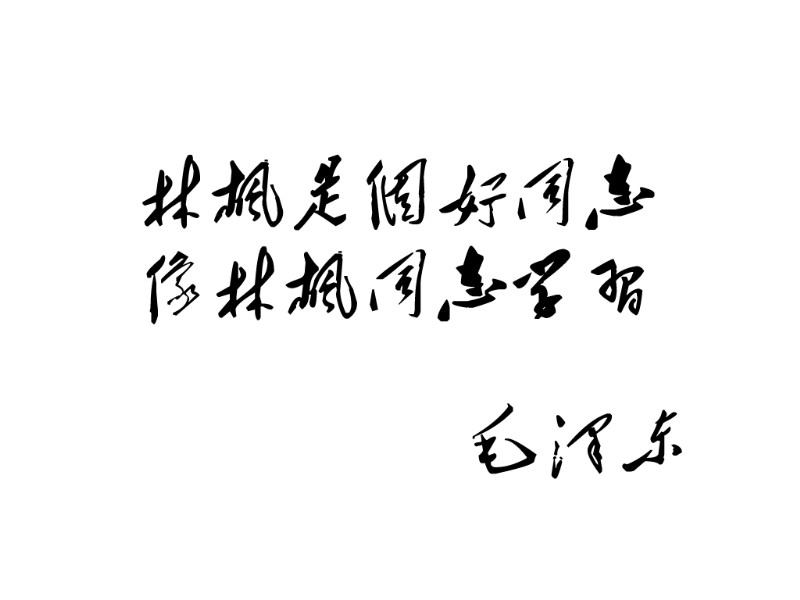 林枫是個好同志
像林枫同志学習
毛泽东